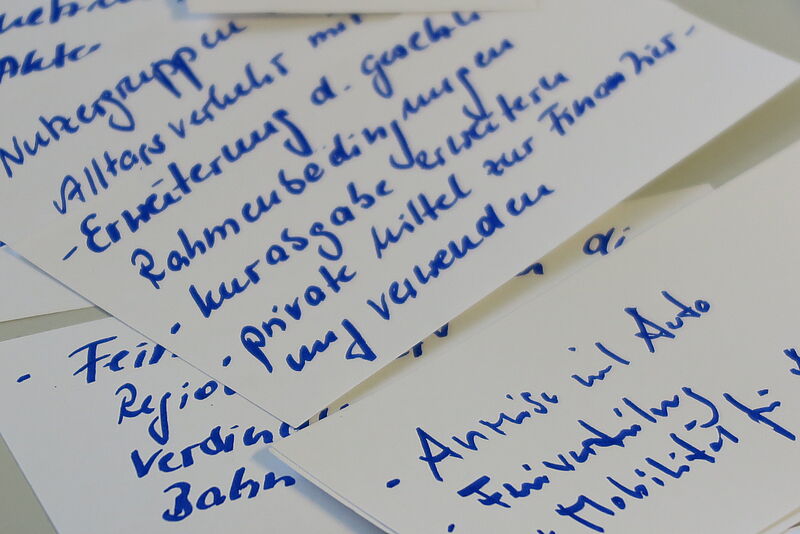 Akte
Nutzergruppen
Alltagsverkehr mit
- Erweiterung d. gesetzl
Rahmenbedingungen
- Kurabgabe erweitern
- private Mittel zur Finanzier-
ung verwenden
- Fein
Regio
Verdin
Bahn
- Anreise mit Auto
- Feinverteilung
" Mobilität für